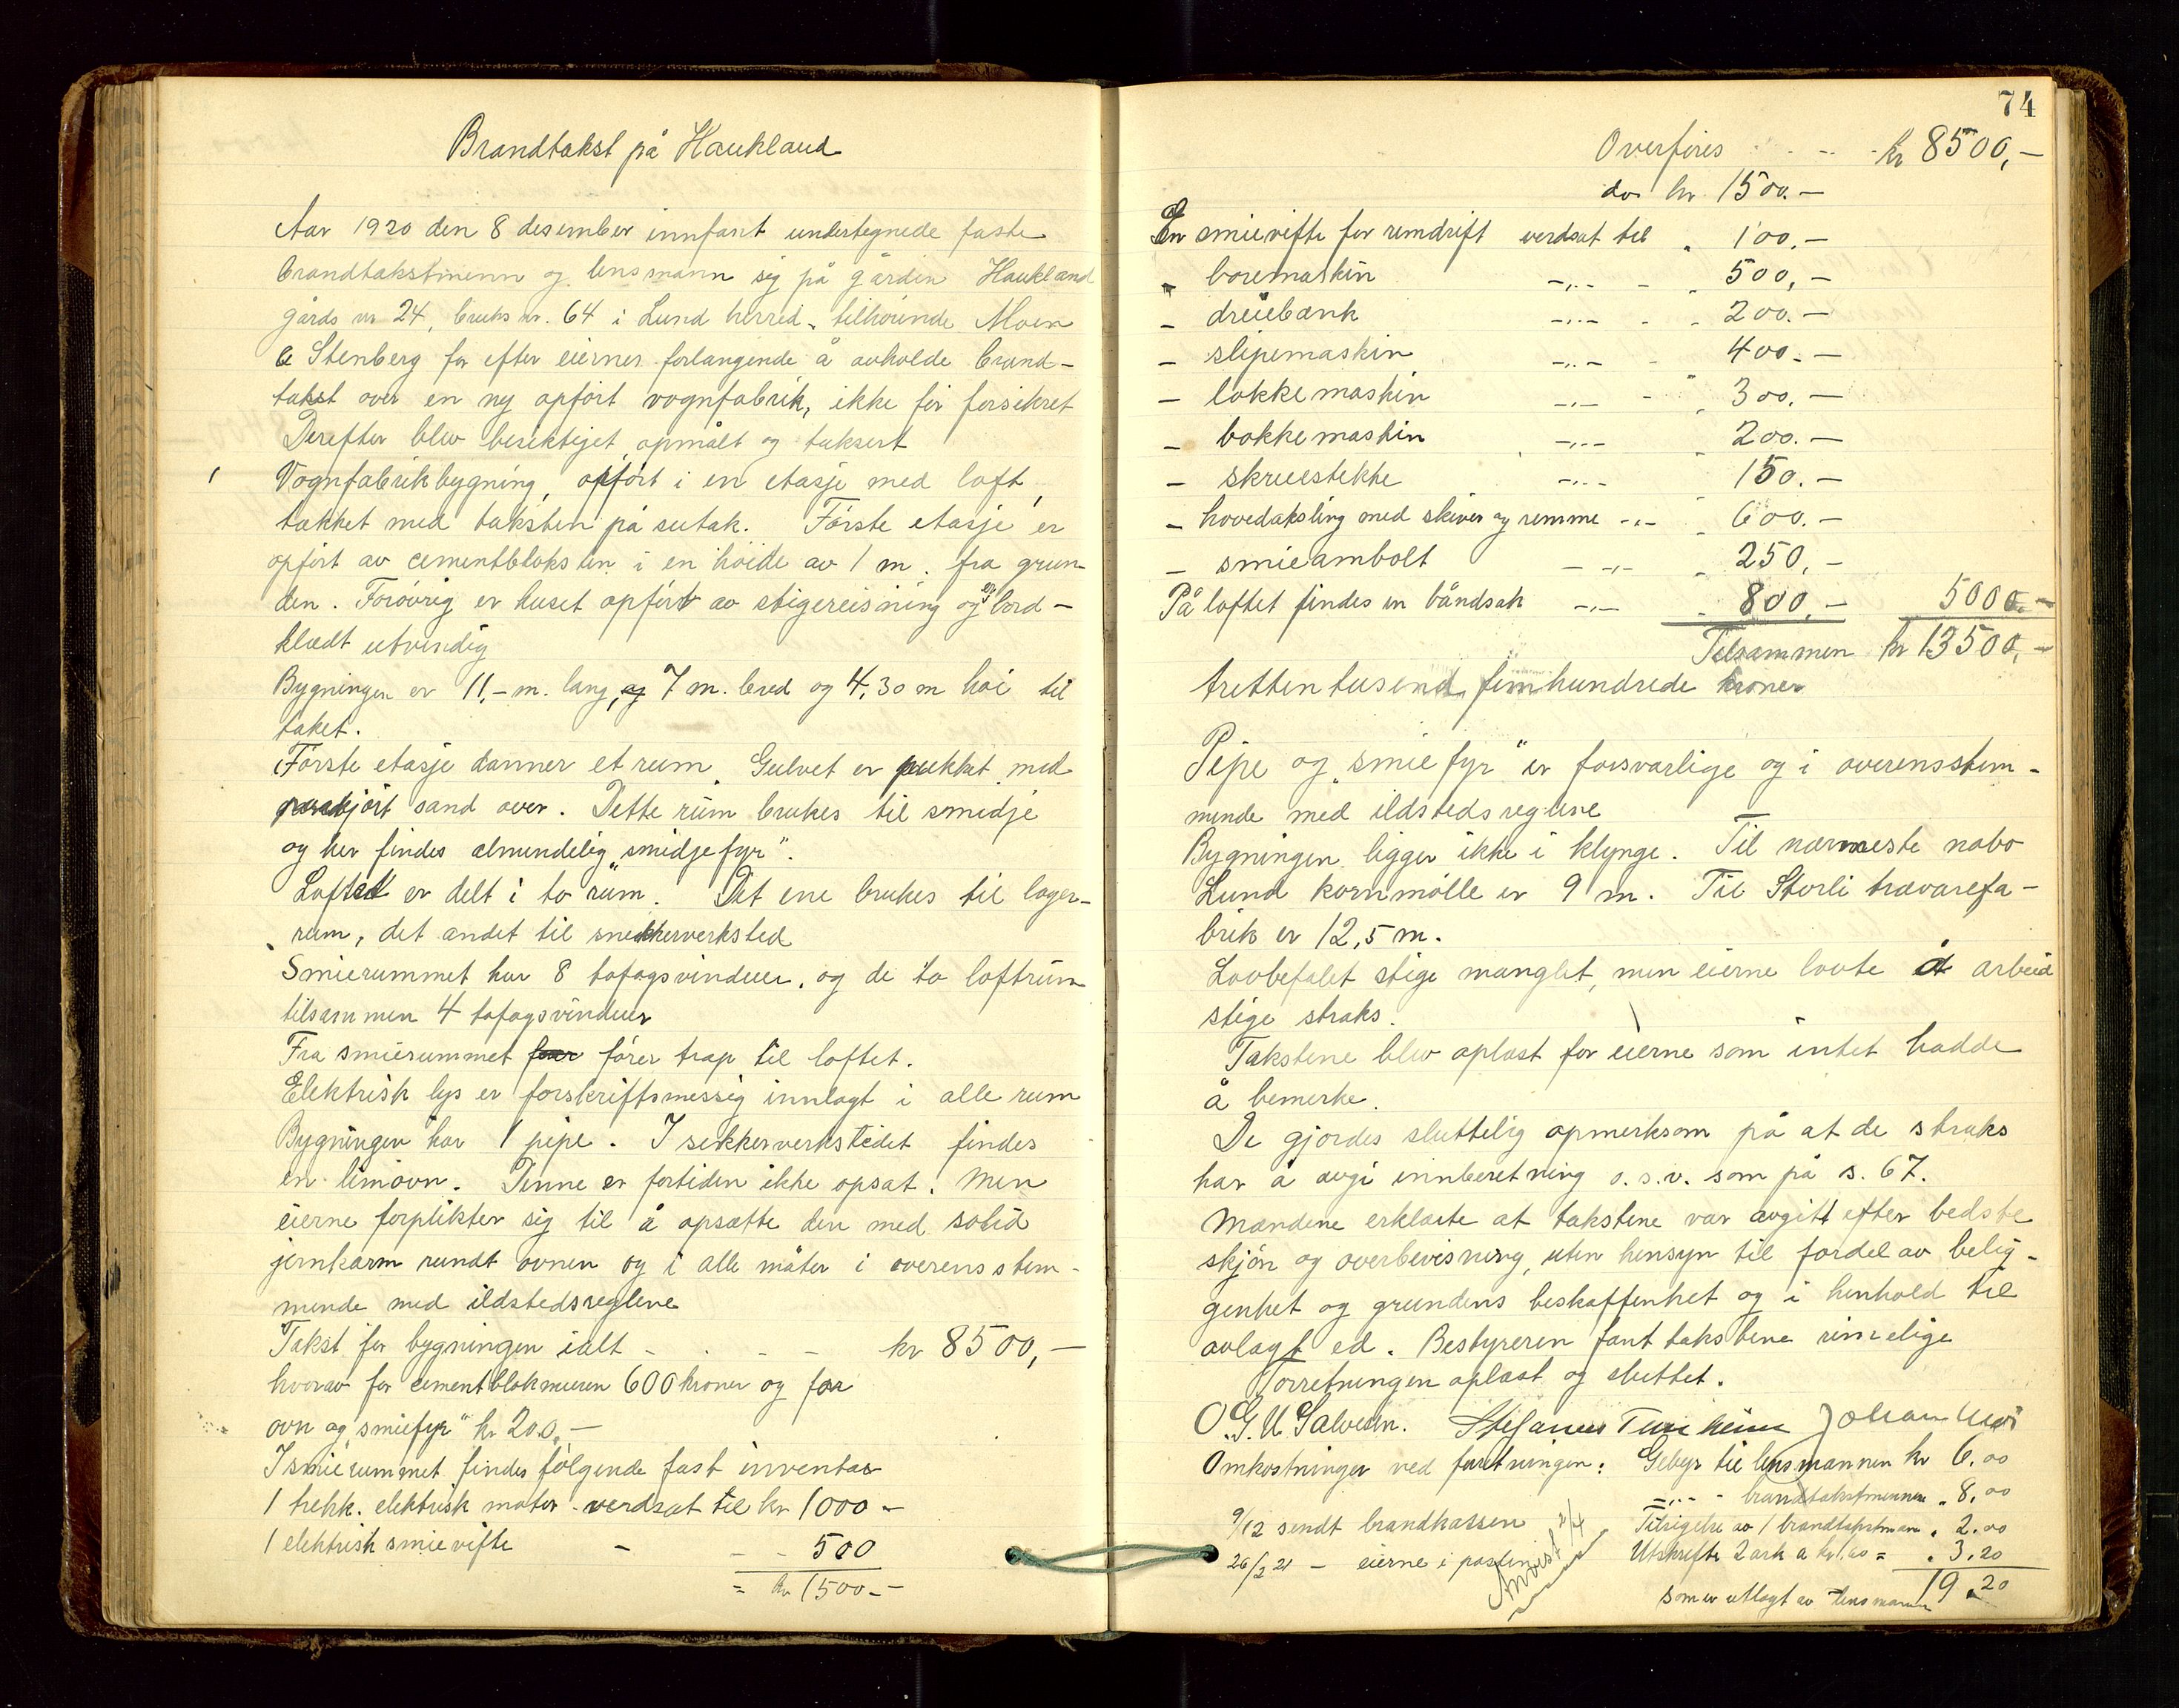 Brandtakst på Haukland
Aar 1920 den 8 desember innfant undertegnede faste
brandtakstmenn og lensmann sig på gården Haukland
gårds nr 24, bruks nr. 64 i Lund herred, tilhörende Moen
& Stenberg for efter eiernes forlangende å avholde brand-
takst over en ny opfört vognfabrik, ikke för forsikret
Derefter blev besiktiget opmålt og taksert
1 Vognfabrikbygning, opfört i en etasje med loft,
tækket med taksten på sutak. Förste etasje er
opfört av cementbloksten i en höide av 1 m. fra grun-
den. Forövrig er huset opfört av stigereisning og bord-
klædt utvendig
Bygningen er 11,- m. lang, 7 m. bred og 4,30 m höi til
taket.
Förste etasje danner et rum. Gulvet er pukket med
påkjört sand over. Dette rum brukes til smidje
og her findes almindelig "smidjefyr".
Loftet er delt i to rum. Det ene brukes til lager-
rum, det andet til snekkerverksted
Smierummet har 8 tofagsvinduer, og de to loftrum
tilsammen 4 tofagsvinduer
Fra smierummet förer trap til loftet.
Elektrisk lys er forskriftsmessig innlagt i alle rum
Bygningen har 1 pipe. I sekkerverkstedet findes
en limovn. Denne er fortiden ikke opsat. Men
eierne forplikter sig til å opsætte den med solid
jernkarm rundt ovnen og i alle måter i overensstem-
mende med ildstedsreglene
Takst for bygningen ialt - . - - kr 8500,-
hvorav for cementblokmuren 600 kroner og for
ovn og "smiefyr" kr 200,-
I smierummet findes fölgende fast inventar
1 hekk. elektrisk motor - verdsat til kr 1000 -
1 elektrisk smievifte - - - 500
= kr 1500 - -
74
Overföres - - - kr 8500,-
do kr 1500.-
En smievifte for remdrift verdsat til " 100.-
- boremaskin -"- - " 500,-
- dreiebænk -"- - " 200.-
- slipemaskin -"- - 400.-
- lokkemaskin -"- - " 300.-
- bokkemaskin -"- " 200.-
- skruestekke -"- 150.-
- hovedaksling med skiver og remme -"- " 600.-
- smieambolt -"- " 250,-
På loftet findes en båndsak -"- " 800,- 5000,-
Tilsammen kr 13500,-
trettentusend femhundrede kroner
Pipe og "smiefyr" er forsvarlige og i overensstem-
mende med ildstedsreglene
Bygningen ligger ikke i klynge. Til nærmeste nabo
Lund kornmölle er 9 m. Til Storli trævarefa-
brik er 12,5 m.
Lovbefalet stige manglet, men eierne lovte å arbeid
stige straks.
Takstene blev oplæst for eierne som intet hadde
å bemerke.
De gjordes sluttelig opmerksom på at de straks
har å avgi innberetning o.s.v. som på s. 67.
Mændene erklærte at takstene var avgitt efter bedste
skjön og overbevisning, uten hensyn til fordel av belig-
genhet og grundens beskaffenhet og i henhold til
avlagt ed. Bestyreren fant takstene rimelige
Forretningen oplæst og sluttet.
O. G. U. Salvesen. Stefanus Tunheim Johan Moi
Omkostninger ved forretningen: Gebyr til lensmannen kr 6.00
-"- - brandtakstmennene " 8,00
9/12 sendt brandkassen Tilsigelse av 1 brandtakstmann " 2.00
26/2 21 - eierne i posten Utskrifter 2 ark a kr 1.60 = " 3.20
Anvist 2/4 19.20
som er utlagt av lensmannen